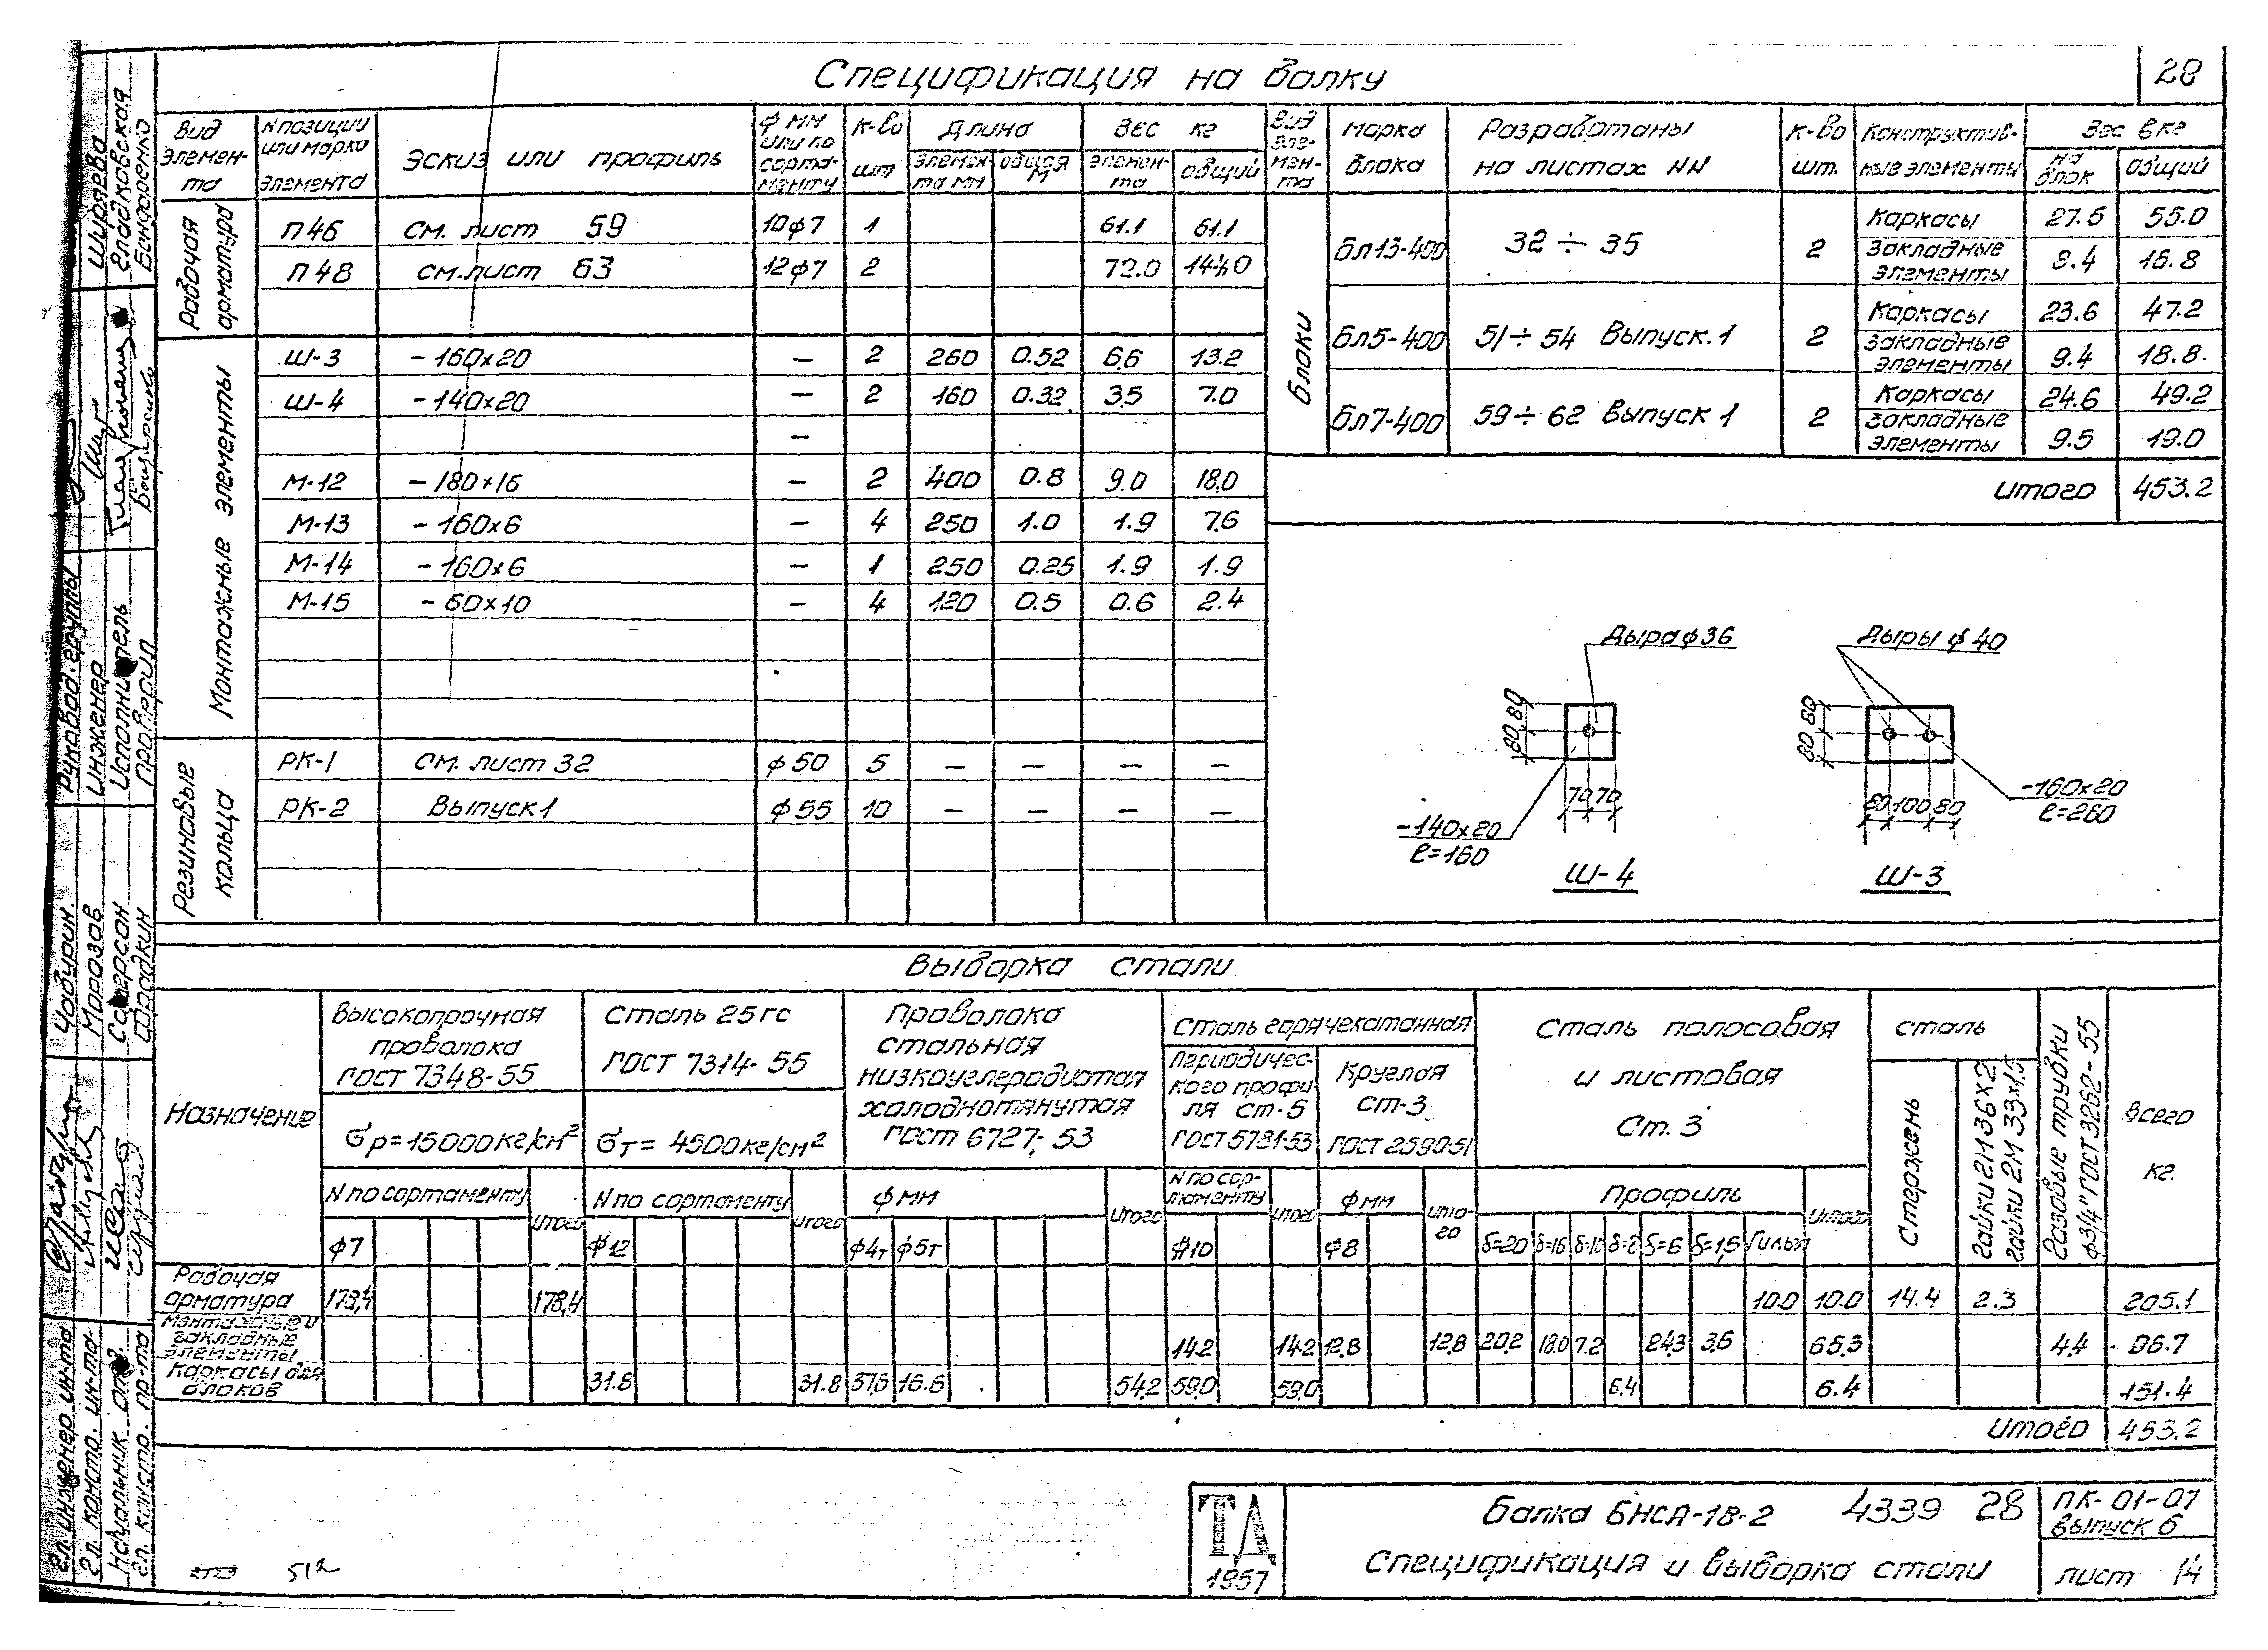 Спецификация на балку
28
Вид элемен-та
N позиции или марка элемента
Эскиз или профиль
ф мм или по сорта-менту
К-во шт
Длина
элемен-та мм
общая м
Вес кг
элемен-та
общий
Рабочая арматура
П46 см. лист 59 10ф7 1 61.1 61.1
П48 см. лист 63 12ф7 2 72.0 144.0
Монтажные элементы
Ш-3 -160х20 — 2 260 0.52 6.6 13.2
Ш-4 -140х20 — 2 160 0.32 3.5 7.0
—
М-12 -180х16 — 2 400 0.8 9.0 18.0
М-13 -160х6 — 4 250 1.0 1.9 7.6
М-14 -160х6 — 1 250 0.25 1.9 1.9
М-15 -60х10 — 4 120 0.5 0.6 2.4
Резиновые кольца
РК-1 См. лист 32 ф50 5 — — — —
РК-2 Выпуск 1 ф55 10 — — — —
Вид эле-мен-та
марка блока
Разработаны на листах NN
К-во шт.
Конструктив-ные элементы
Вес в кг
на блок
общий
Блоки
Бл13-400 32 ÷ 35 2
Каркасы 27.5 55.0
Закладные элементы 8.4 16.8
Бл5-400 51 ÷ 54 Выпуск. 1 2
Каркасы 23.6 47.2
Закладные элементы 9.4 18.8
Бл7-400 59 ÷ 62 Выпуск 1 2
Каркасы 24.6 49.2
Закладные элементы 9.5 19.0
Итого 453.2
Дыра ф36
Дыры ф 40
80 80
70 70
-140х20
ℓ=160
Ш-4
80 80
80 100 80
-160х20
ℓ=260
Ш-3
Выборка стали
Назначение
Высокопрочная
проволока
ГОСТ 7348-55
бр=15000кг/см²
N по сортаменту
Итого
ф7
Сталь 25гс
ГОСТ 7314-55
бт= 4500кг/см²
N по сортаменту
Итого
ф12
Проволока
стальная
низкоуглеродистая
холоднотянутая
ГОСТ 6727-53
ф мм
Итого
ф4т ф5т
Сталь горячекатанная
Периодичес-
кого профи-
ля ст.5
ГОСТ 5781-53
N по сор-
таменту
Итого
#10
Круглая
ст-3
ГОСТ 2590-51
ф мм
Ито-го
ф8
Сталь полосовая
и листовая
Ст. 3
Профиль
Итого
δ=20 δ=16 δ=10 δ=8 δ=6 δ=1,5 Гильза
сталь
Стержень
Гайки 2М 36х2
гайки 2М 33х1,5
Газовые трубки
ф3/4" ГОСТ 3262-55
Всего
кг.
Рабочая арматура 178,4 178,4 10.0 10.0 14.4 2.3 205.1
Монтажные и закладные элементы 14.2 14.2 12.8 12.8 20.2 18.0 7.2 24.3 3.6 65.3 4.4 96.7
Каркасы для блоков 31.8 31.8 37.6 16.6 54.2 59.0 59.0 6.4 6.4 151.4
Итого 453.2
ТД
1957
Балка БНСА-18-2 4339 28
Спецификация и выборка стали
ПК-01-07
выпуск 6
лист 14
512
Гл. инженер ин-та
Гл. констр. ин-та
Начальник
Гл. констр. пр-та
Морозов
Руковод. группы
Инженер
Исполнитель
Проверил
Ширяева
Гладковская
Бондаренко